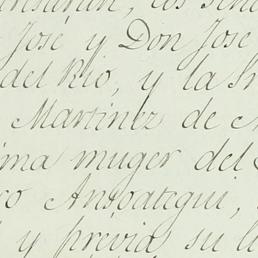 José y Don José
del Rio, y la
Martinez de
muger del
Ansoategui,
y previa su